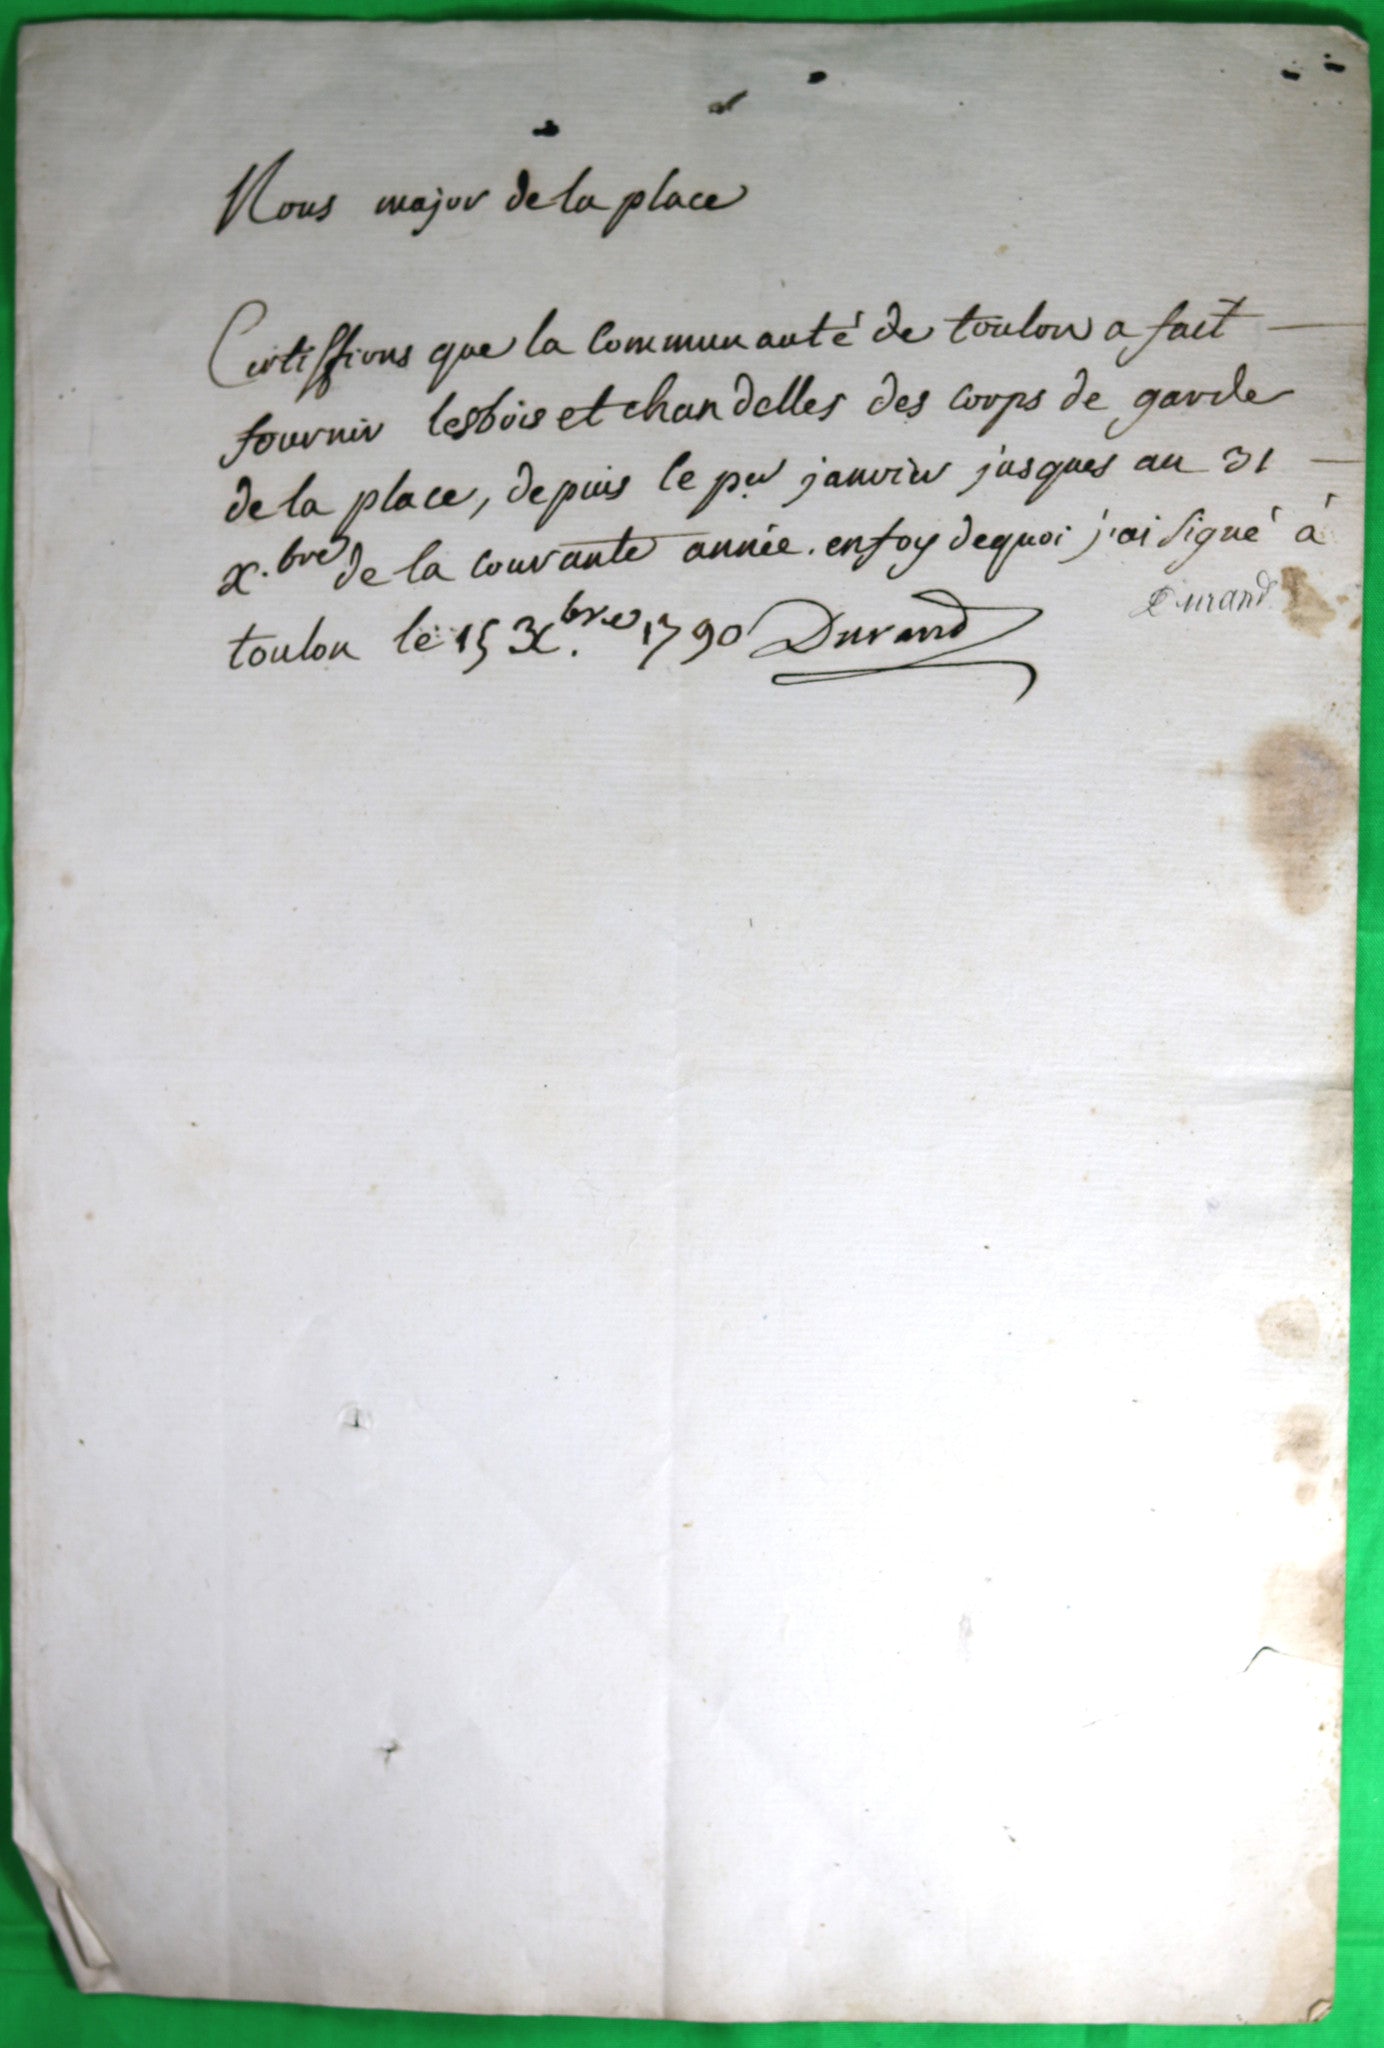 Nous major de la place
Certiffions que la Communauté de toulon a fait
fournir lesbois et chandelles des corps de garde
de la place, depuis le per janvier jusques au 31
x.bre de la courante année. enfoy dequoi j'ai signé à
Durand
toulon le 15 X.bre 1790 Durand